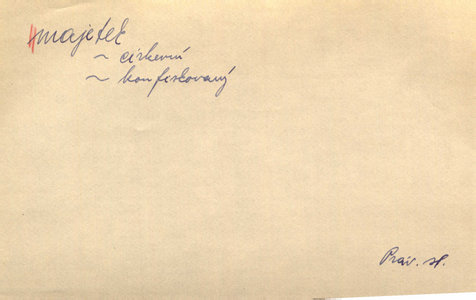 majetek
~ církevní
~ konfiskovaný
Práv. sl.